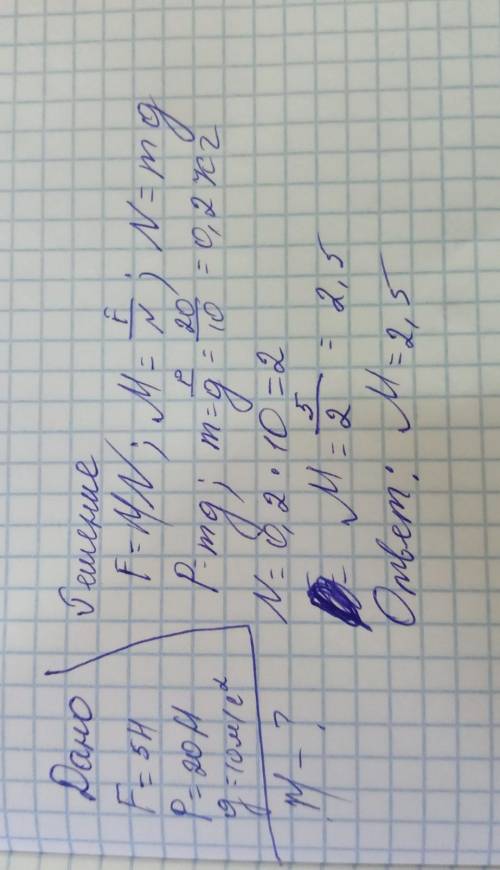 Дано
F = 5Н
P = 20Н
g = 10м/с²
М - ?
Решение
F = МN; М = F/N; N = mg
P = mg; m = P/g = 20/10 = 0,2 кг
N = 0,2 · 10 = 2
М = 5/2 = 2,5
Ответ: М = 2,5